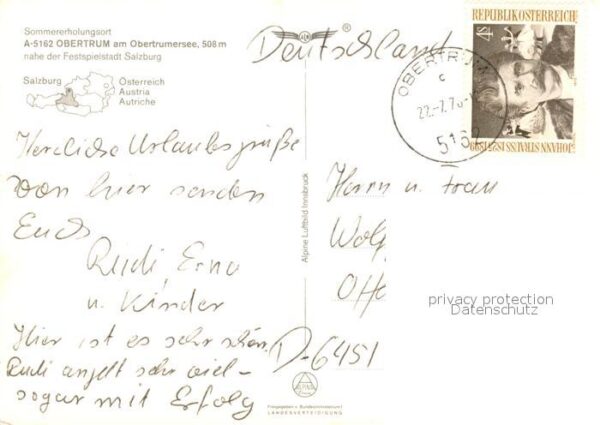 Sommererholungsort
A-5162 OBERTRUM am Obertrumersee, 508 m
nahe der Festspielstadt Salzburg
Salzburg
Österreich
Austria
Autriche
Herzliche Urlaubsgrüße
von hier senden
Euch
Rudi, Erna
u. Kinder
Hier ist es sehr schön
Rudi angelt sehr viel-
sogar mit Erfolg
®
Alpine Luftbild Innsbruck
ALPINE
Freigegeben v. Bundesministerium f.
LANDESVERTEIDIGUNG
Deutschland
REPUBLIK ÖSTERREICH
4S
JOHANN STRAUSS 1825 1899
OBERTRUM
c
5162
Herrn u. Frau
Wolf
Otto
D-6451
privacy protection
Datenschutz